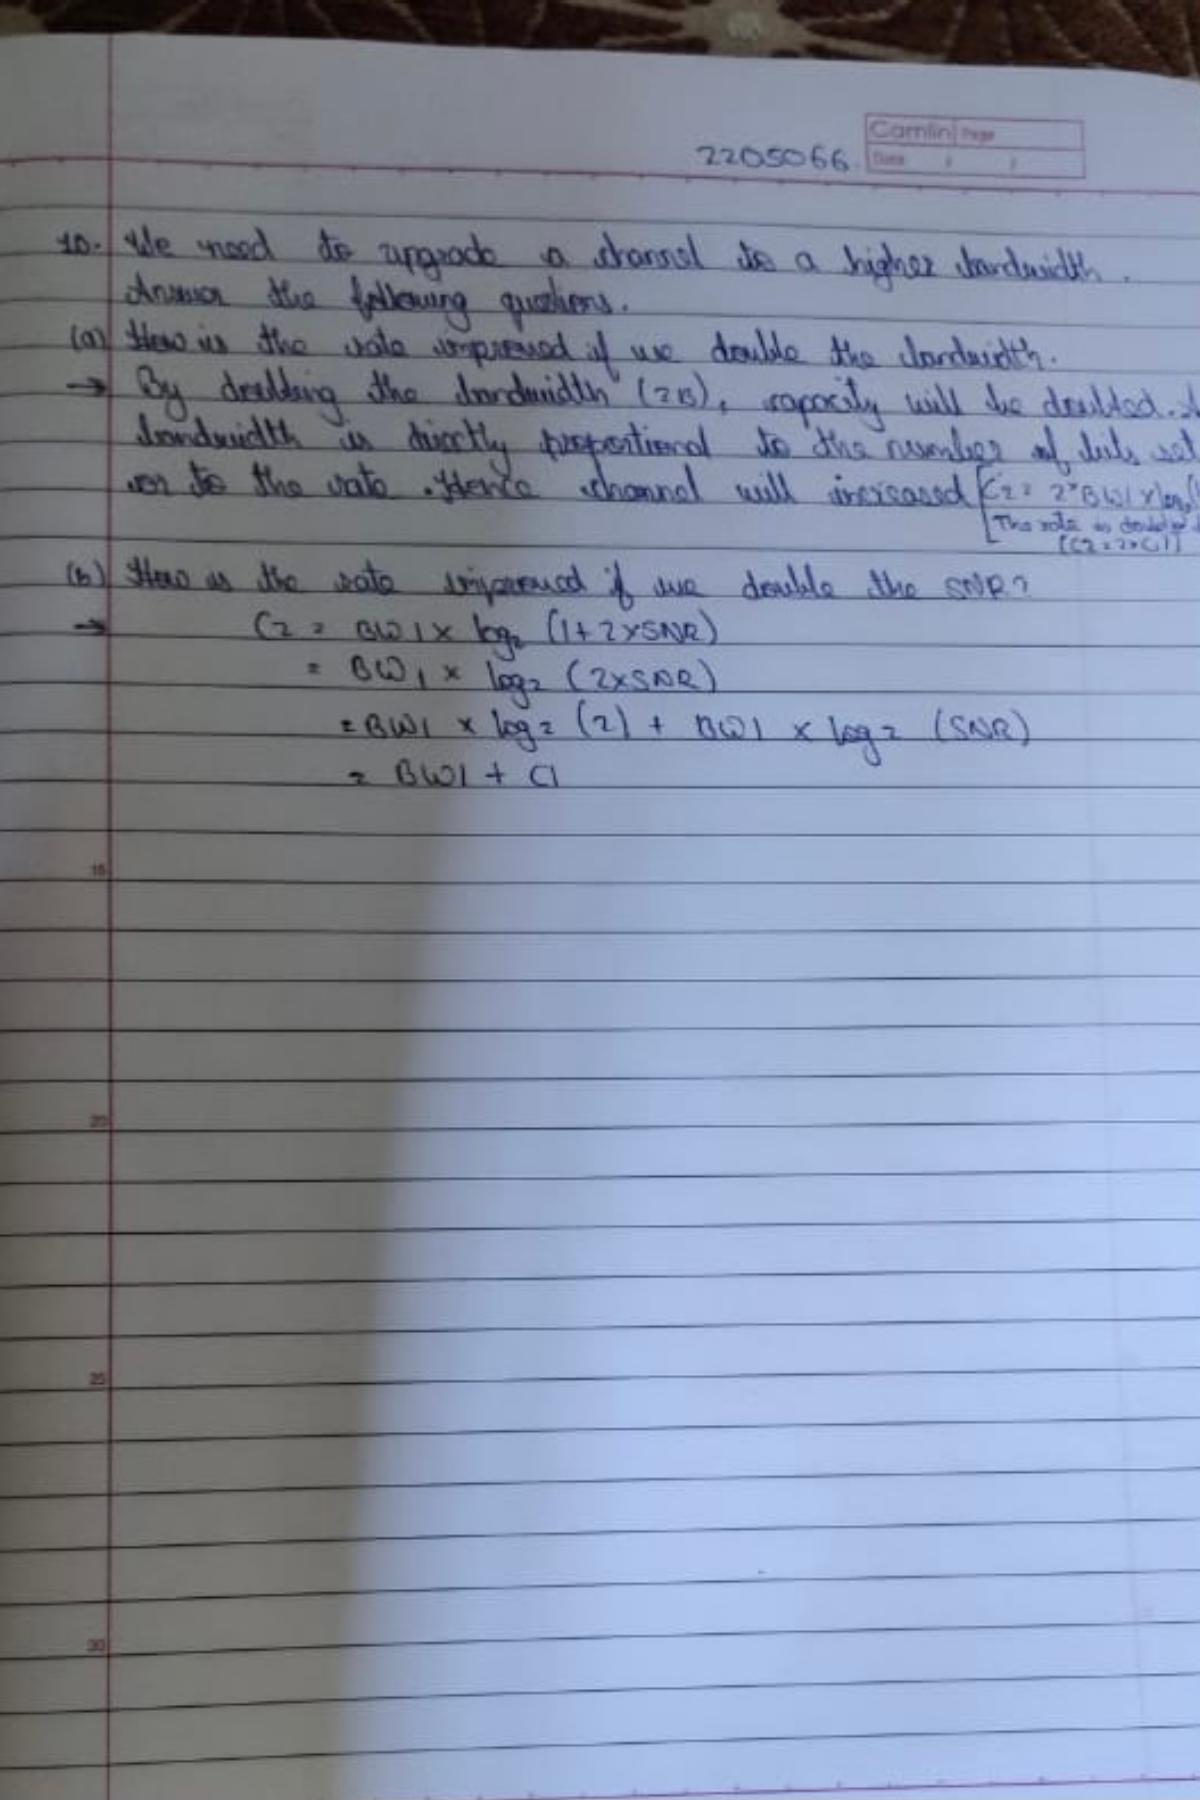 Camlin Page
2205066 Date / /
10. We need to upgrade a channel to a higher bandwidth.
Answer the following questions.
(a) How is the rate improved if we double the bandwidth.
→ By doubling the bandwidth (2B), capacity will be doubled.
bandwidth is directly proportional to the number of bits
or to the rate. Hence channel will increased [C2 = 2*BW1 x log2
The rate is doubled
(C2 = 2*C1)
(b) How is the rate improved if we double the SNR?
→ C2 = BW1 x log2 (1+2xSNR)
= BW1 x log2 (2xSNR)
= BW1 x log2 (2) + BW1 x log2 (SNR)
= BW1 + C1
15
20
25
30